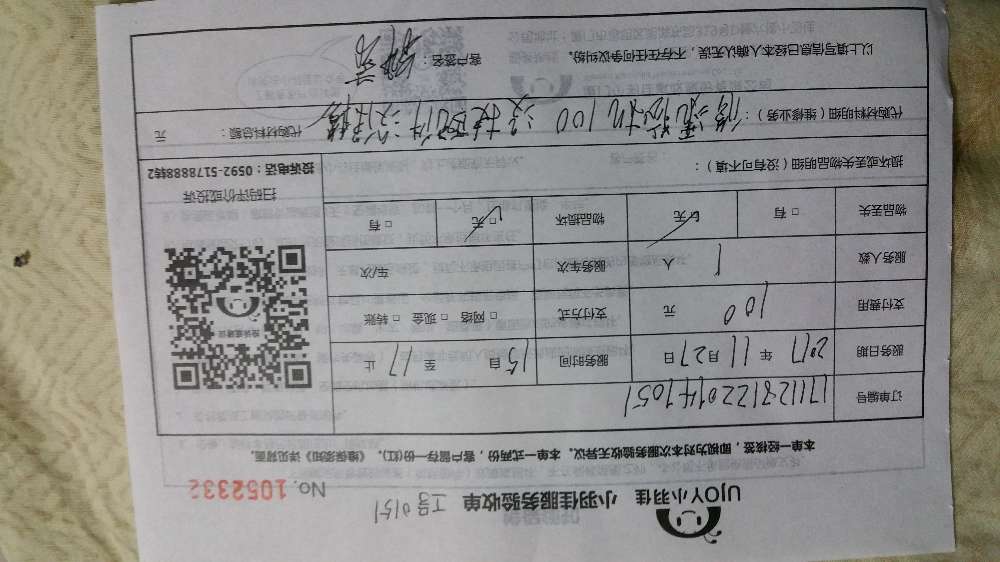 UJOY小羽佳 小羽佳服务验收单 工号0151 No. 1052332
本单一经核签,即视为对本次服务验收无异议。本单一式两份,客户留存一份(红)。《维保须知》详见背面。
订单编号 1711281220147051
服务日期 2017 年 11 月 27 日 服务时间 15 自 至 17 止
支付费用 100 元 支付方式 □ 网络 □ 现金 □ 转账
服务人数 1 人 服务车次 车/次
物品丢失 □ 有 ☑ 无 物品损坏 ☑ 无 □ 有
扫码评价或投诉
投诉电话:0592-5178888转2
损坏或丢失物品明细(没有可不填):
代购材料明细(维修业务): 100 代购材料总额: 元
以上填写信息已经本人确认无误,不存在任何争议纠纷。 客户签名: